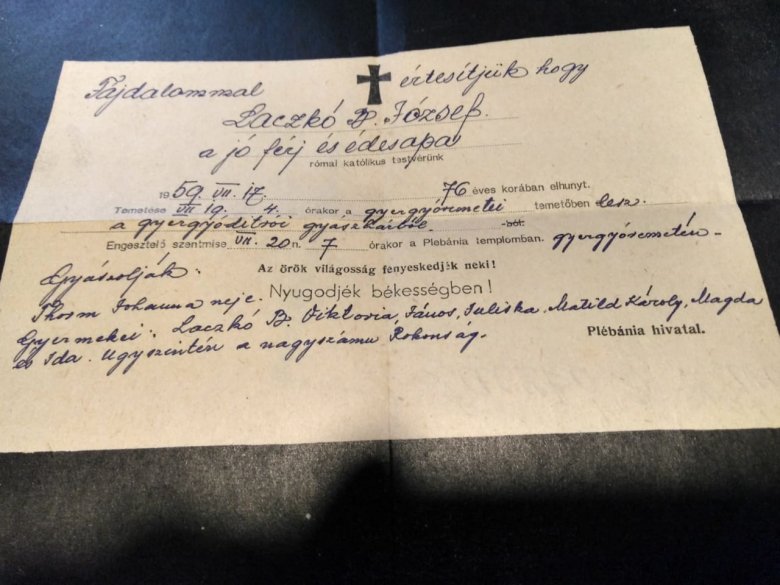 Fajdalommal értesítjük hogy
Laczkó B. József.
a jó férj és édesapa
római katólikus testvérünk
1959. VII. 17. 76 éves korában elhunyt.
Temetése VII 19. 4. órakor a gyergyóremetei temetőben lesz.
a gyergyóditrói gyaszházból. -ból.
Engesztelő szentmise VII. 20 n. 7 órakor a Plebánia templomban. gyergyóremetén-
Az örök világosság fényeskedjék neki!
Gyászolják:
Nyugodjék békességben!
Thorm Johanna neje.
Gyermekei: Laczkó B. Viktoria, János, Juliska, Matild Károly, Magda
és Ida. Ugyszintén a nagyszámu Rokonság.
Plébánia hivatal.